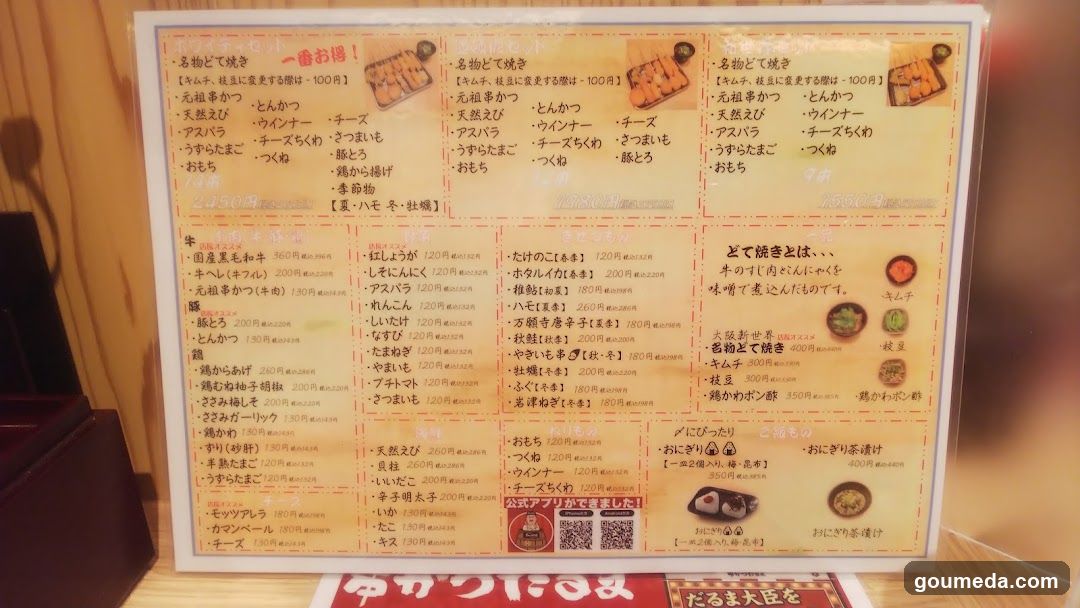 ホワイティセット
一番お得！
・名物どて焼き
【キムチ、枝豆に変更する際は－100円】
・元祖串かつ
・天然えび
・アスパラ
・うずらたまご
・おもち
・とんかつ
・ウインナー
・チーズちくわ
・つくね
・チーズ
・さつまいも
・豚とろ
・鶏から揚げ
・季節物
【夏・ハモ 冬・牡蠣】
2450円
・名物どて焼き
【キムチ、枝豆に変更する際は－100円】
・元祖串かつ
・天然えび
・アスパラ
・うずらたまご
・おもち
・とんかつ
・ウインナー
・チーズちくわ
・つくね
・チーズ
・さつまいも
・豚とろ
・名物どて焼き
【キムチ、枝豆に変更する際は－100円】
・元祖串かつ
・天然えび
・アスパラ
・うずらたまご
・おもち
・とんかつ
・ウインナー
・チーズちくわ
・つくね
9本
1550円
牛
店長オススメ
・国産黒毛和牛 360円税込396円
・牛ヘレ(牛フィレ) 200円税込220円
・元祖串かつ(牛肉) 130円税込143円
豚
店長オススメ
・豚とろ 200円税込220円
・とんかつ 130円税込143円
鶏
・鶏からあげ 260円税込286円
・鶏むね柚子胡椒 200円税込220円
・ささみ梅しそ 200円税込220円
・ささみガーリック 130円税込143円
・鶏かわ 130円税込143円
・ずり(砂肝) 130円税込143円
・半熟たまご 120円税込132円
・うずらたまご 120円税込132円
チーズ
店長オススメ
・モッツアレラ 180円税込198円
・カマンベール 180円税込198円
・チーズ 130円税込143円
店長オススメ
・紅しょうが 120円税込132円
・しそにんにく 120円税込132円
・アスパラ 120円税込132円
・れんこん 120円税込132円
・しいたけ 120円税込132円
・なすび 120円税込132円
・たまねぎ 120円税込132円
・やまいも 120円税込132円
・プチトマト 120円税込132円
・さつまいも 120円税込132円
海鮮
・天然えび 260円税込286円
・貝柱 260円税込286円
・いいだこ 200円税込220円
・辛子明太子 200円税込220円
・いか 130円税込143円
・たこ 130円税込143円
・キス 130円税込143円
きせつもん
・たけのこ【春季】 120円税込132円
・ホタルイカ【春季】 200円税込220円
・稚鮎【初夏】 180円税込198円
・ハモ【夏季】 260円税込286円
・万願寺唐辛子【夏季】 180円税込198円
・秋鮭【秋季】 200円税込220円
・やきいも串【秋・冬】 180円税込198円
・牡蠣【冬季】 200円税込220円
・ふぐ【冬季】 180円税込198円
・岩津ねぎ【冬季】 180円税込198円
ねりもの
・おもち 120円税込132円
・つくね 120円税込132円
・ウインナー 120円税込132円
・チーズちくわ 120円税込132円
公式アプリができました！
iPhoneの方
Androidの方
一品
どて焼きとは、、、
牛のすじ肉とこんにゃくを
味噌で煮込んだものです。
大阪新世界 店長オススメ
・名物どて焼き 400円税込440円
・キムチ 300円税込330円
・枝豆 300円税込330円
・鶏かわポン酢 350円税込385円
・キムチ
・枝豆
・鶏かわポン酢
ご飯もの
〆にぴったり
・おにぎり
【一皿2個入り、梅・昆布】
350円税込385円
おにぎり
【一皿2個入り、梅・昆布】
・おにぎり茶漬け
400円税込440円
おにぎり茶漬け
串かつだるま
だるま大臣を
goumeda.com